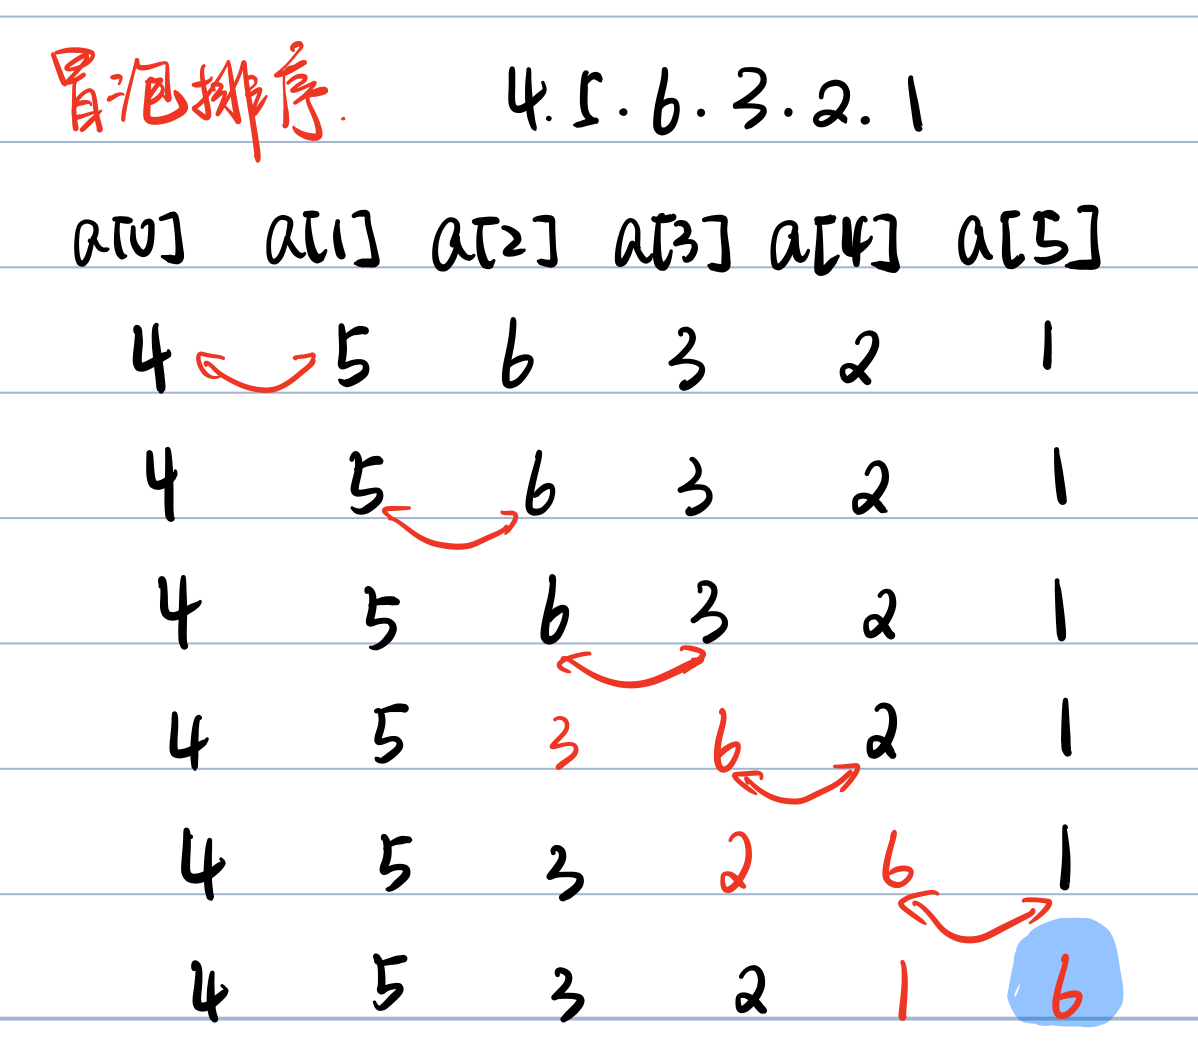 冒泡排序. 4. 5. 6. 3. 2. 1
a[0] a[1] a[2] a[3] a[4] a[5]
4 5 6 3 2 1
4 5 6 3 2 1
4 5 6 3 2 1
4 5 3 6 2 1
4 5 3 2 6 1
4 5 3 2 1 6